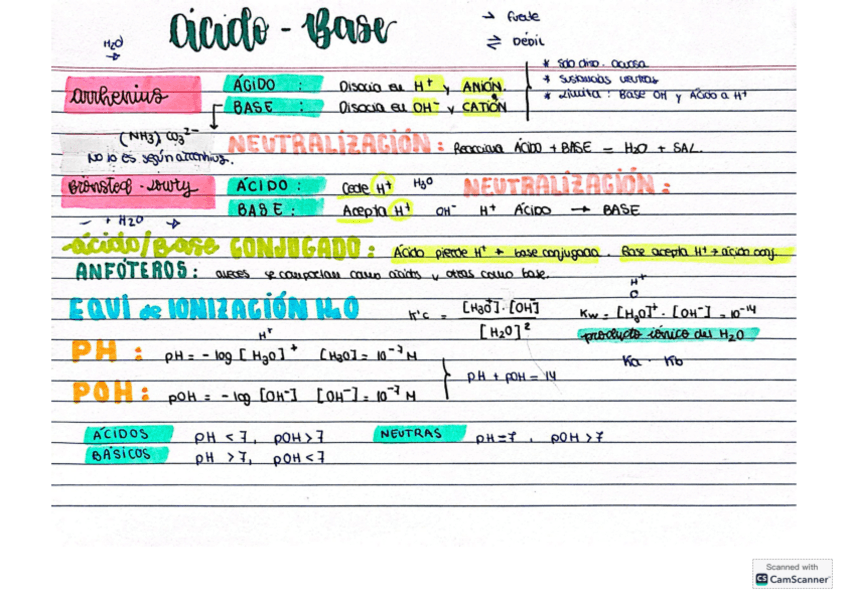 ácido - Base
→ fuerte
⇌ Débil
H₂O
→
* Sólo diso. acuosa
* Sustancias neutras
* Limita : Base OH y Ácido a H⁺
arrhenius
ÁCIDO : Disocia en H⁺ y ANIÓN.
BASE : Disocia en OH⁻ y CATIÓN
(NH3) CO₃²⁻
No lo es según arrhenius.
NEUTRALIZACIÓN : Reacciona ÁCIDO + BASE = H₂O + SAL.
Brönsted - Lowry
ÁCIDO : Cede H⁺ H₃O
NEUTRALIZACIÓN :
BASE : Acepta H⁺ OH⁻ H⁺ ÁCIDO → BASE
- + H2O →
ácido/Base CONJUGADO : Ácido pierde H⁺ + base conjugada. Base acepta H⁺ + ácido conj.
ANFÓTEROS : aveces se comportan como ácidos y otras como base.
EQUI de IONIZACIÓN H₂O
K'c = [H₃O⁺]·[OH⁻] / [H₂O]²
H⁺
Kw = [H₃O]⁺ · [OH⁻] = 10⁻¹⁴
producto iónico del H₂O
Ka · Kb
H⁺
PH : pH = - log [H₃O]⁺ [H₃O] = 10⁻⁷ M
POH : pOH = - log [OH⁻] [OH⁻] = 10⁻⁷ M
pH + pOH = 14
ÁCIDOS pH < 7, pOH > 7
NEUTRAS pH = 7 , pOH > 7
BÁSICOS pH > 7, pOH < 7
Scanned with
CS CamScanner